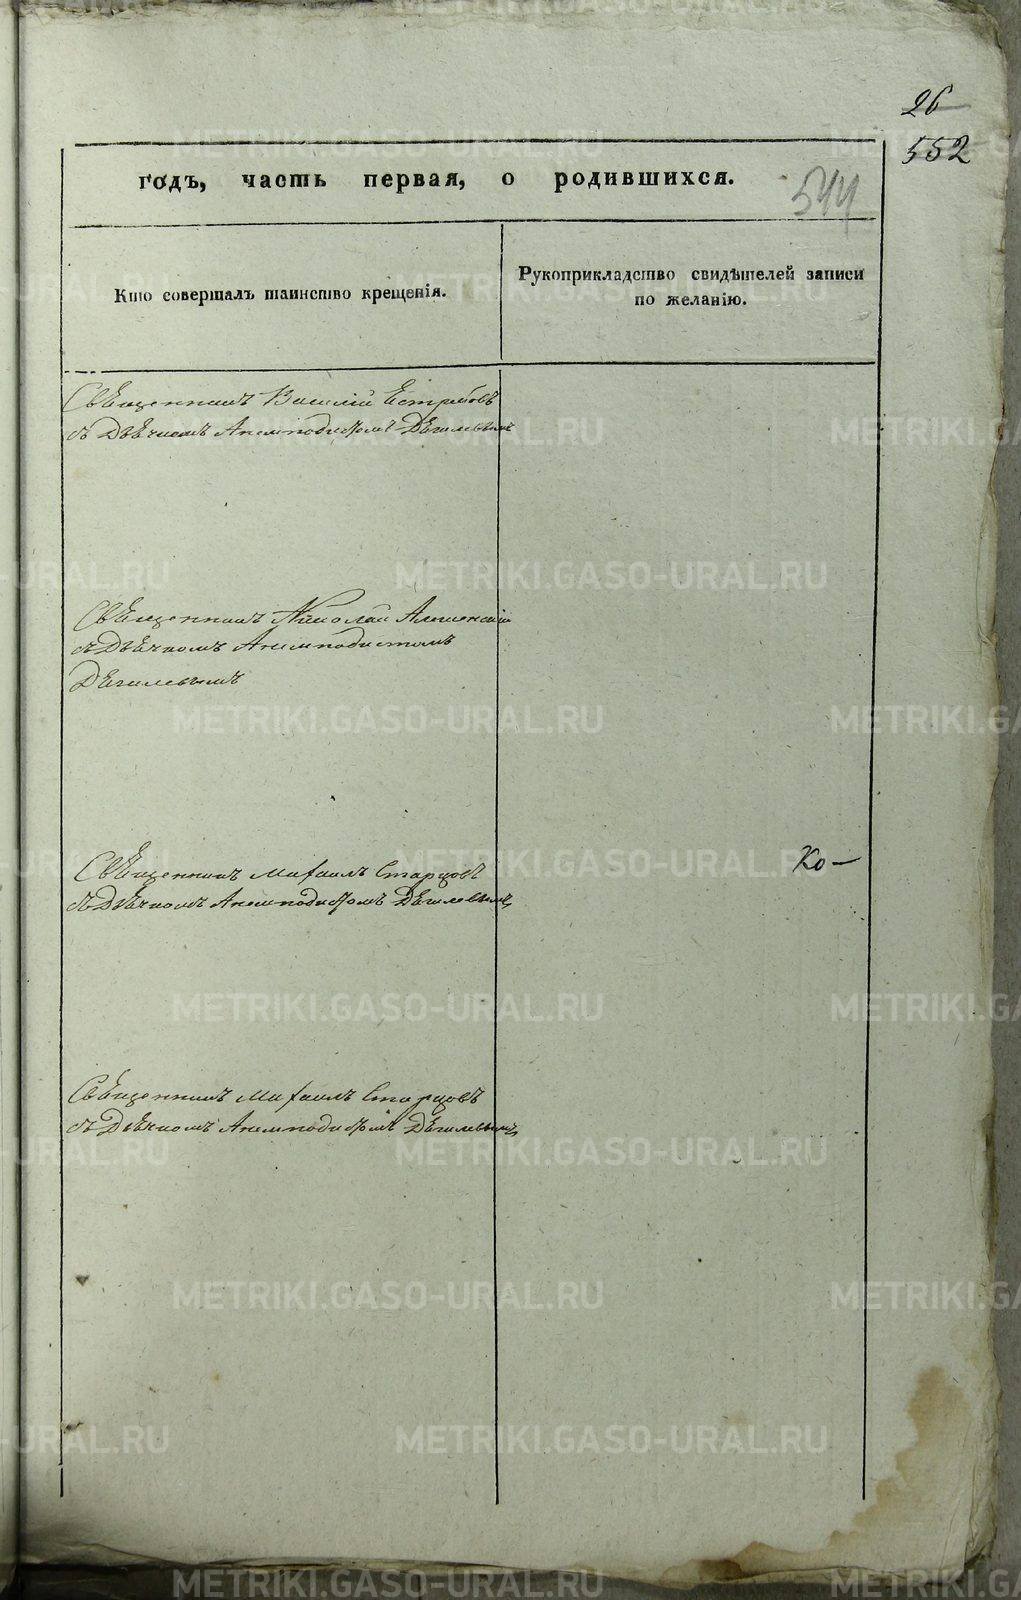 26
552
544
годъ, часть первая, о родившихся.
Кто совершалъ таинство крещенія.
Рукоприкладство свидѣтелей записи
по желанію.
Священникъ Василій Естребовъ
съ Дьячкомъ Анемподистомъ Дягилевымъ
Священникъ Николай
съ Дьячкомъ Анемподистомъ
Дягилевымъ
Священникъ Михаилъ Старцовъ
съ Дьячкомъ Анемподистомъ Дягилевымъ
Ко—
Священникъ Михаилъ Старцовъ
съ Дьячкомъ Анемподистомъ Дягилевымъ
METRIKI.GASO-URAL.RU